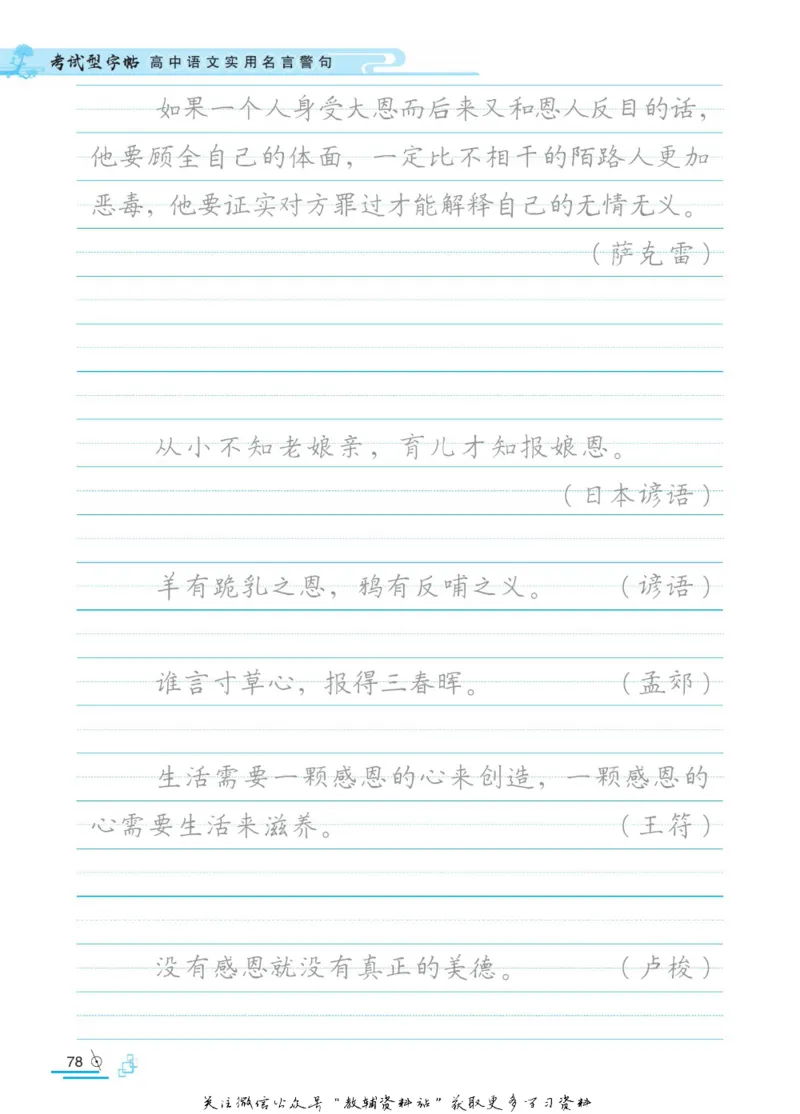 考试型字帖 高中语文实用名言警句
如果一个人身受大恩而后来又和恩人反目的话，
他要顾全自己的体面，一定比不相干的陌路人更加
恶毒，他要证实对方罪过才能解释自己的无情无义。
（萨克雷）
从小不知老娘亲，育儿才知报娘恩。
（日本谚语）
羊有跪乳之恩，鸦有反哺之义。 （谚语）
谁言寸草心，报得三春晖。 （孟郊）
生活需要一颗感恩的心来创造，一颗感恩的
心需要生活来滋养。 （王符）
没有感恩就没有真正的美德。 （卢梭）
78
关注微信公众号“教辅资料站”获取更多学习资料